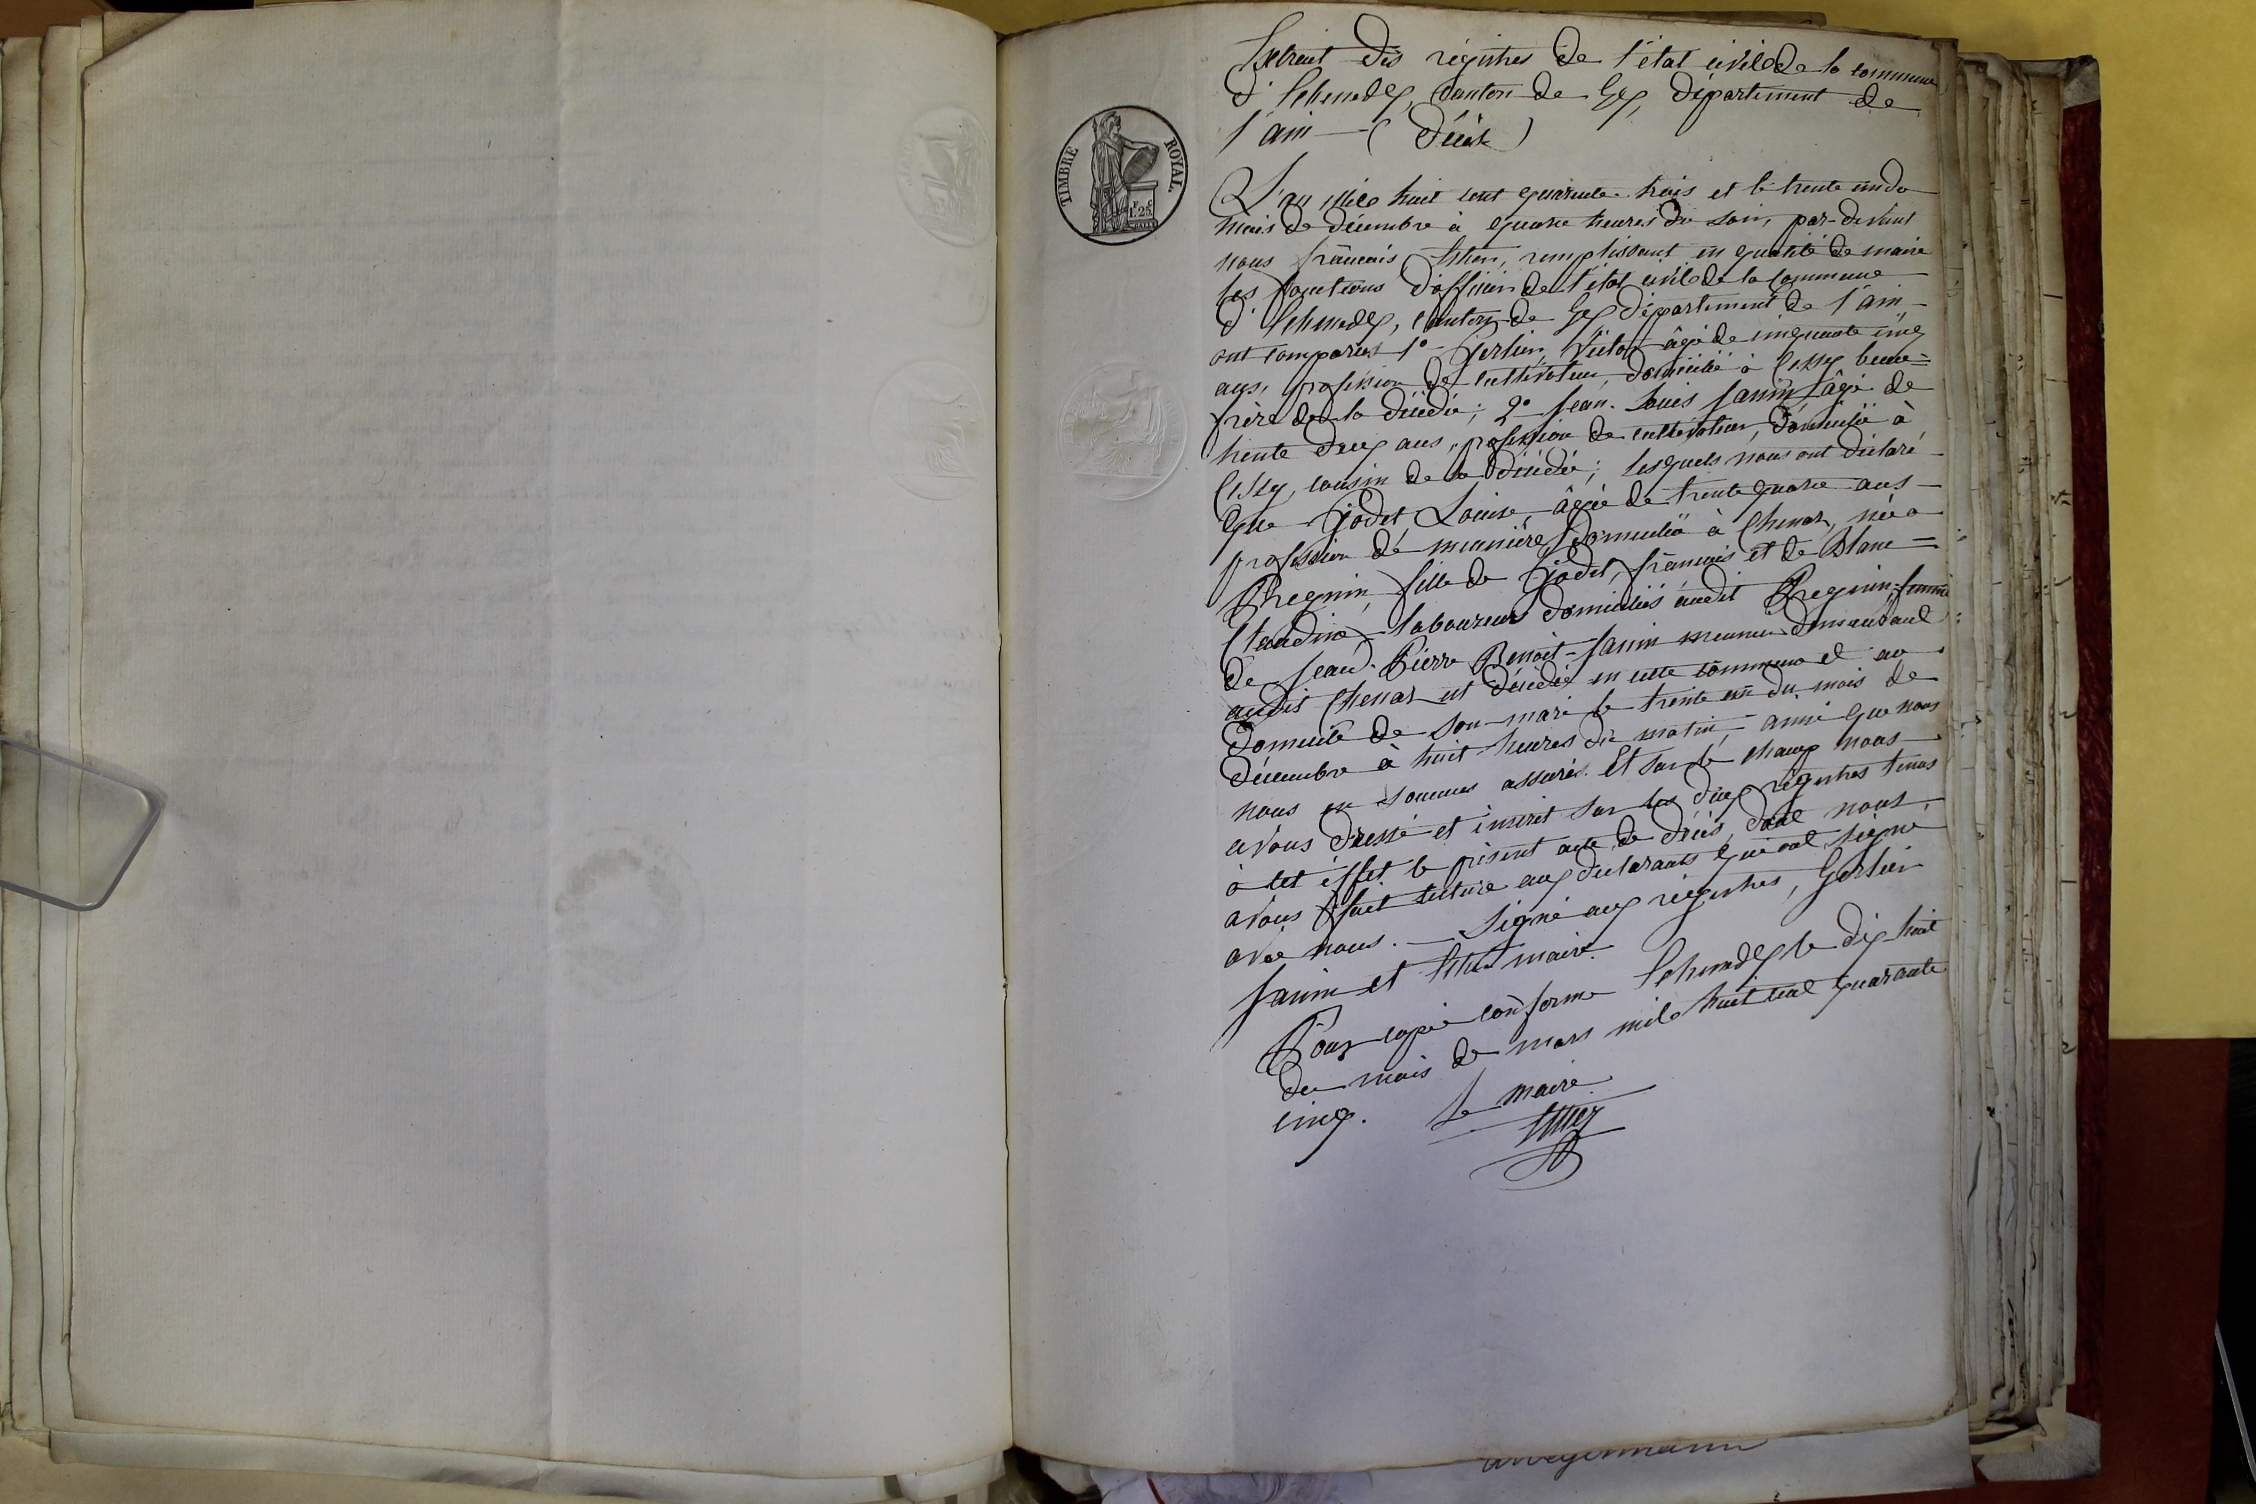 TIMBRE ROYAL
1.25
Extrait des régistres de l'état civil de la commune
d'Echenevex, canton de Gex, département de
l'ain — (Décès)
L'an mile huit cent quarante trois et le trente un du
mois de décembre à quatre heures du soir, par-devant
nous français, remplissant en qualité de maire
les fonctions d'officier de l'état civil de la commune
d'Echenevex, canton de Gex département de l'ain
ont comparus 1° Gerlier, Victor âgé de cinquante cinq
ans, profession de cultivateur, domicilié à Cessy beau=
frère de la décédée; 2° Jean-Louis Janin âgé de
trente deux ans, profession de cultivateur, domicilié à
Cessy, cousin de la décédée; lesquels nous ont déclaré
que Godet Louise, âgée de trente quatre ans
profession de meunière domiciliée à Chenaz, née à
Pregnin, fille de Godet, français et de Blanc=
Claudine, laboureurs domiciliés audit Pregnin, femme
de Jean-Pierre Benoit-Janin meunier demeurant
audit Chenaz est décédée en cette commune et au
domicile de son mari le trente un du mois de
décembre à huit heures du matin, ainsi que nous
nous en sommes assurés. Et sur le champ nous
avons dressé et inscrit sur les deux régistres tenus
à cet éffet le présent acte de décès, dont nous
avons fait lecture aux déclarants qui ont signé
avec nous. — Signé aux régistres, Gerlier
Janin et maire.
Pour copie conforme Echenevex le dix huit
du mois de mars mile huit cent quarante
cinq. Le maire